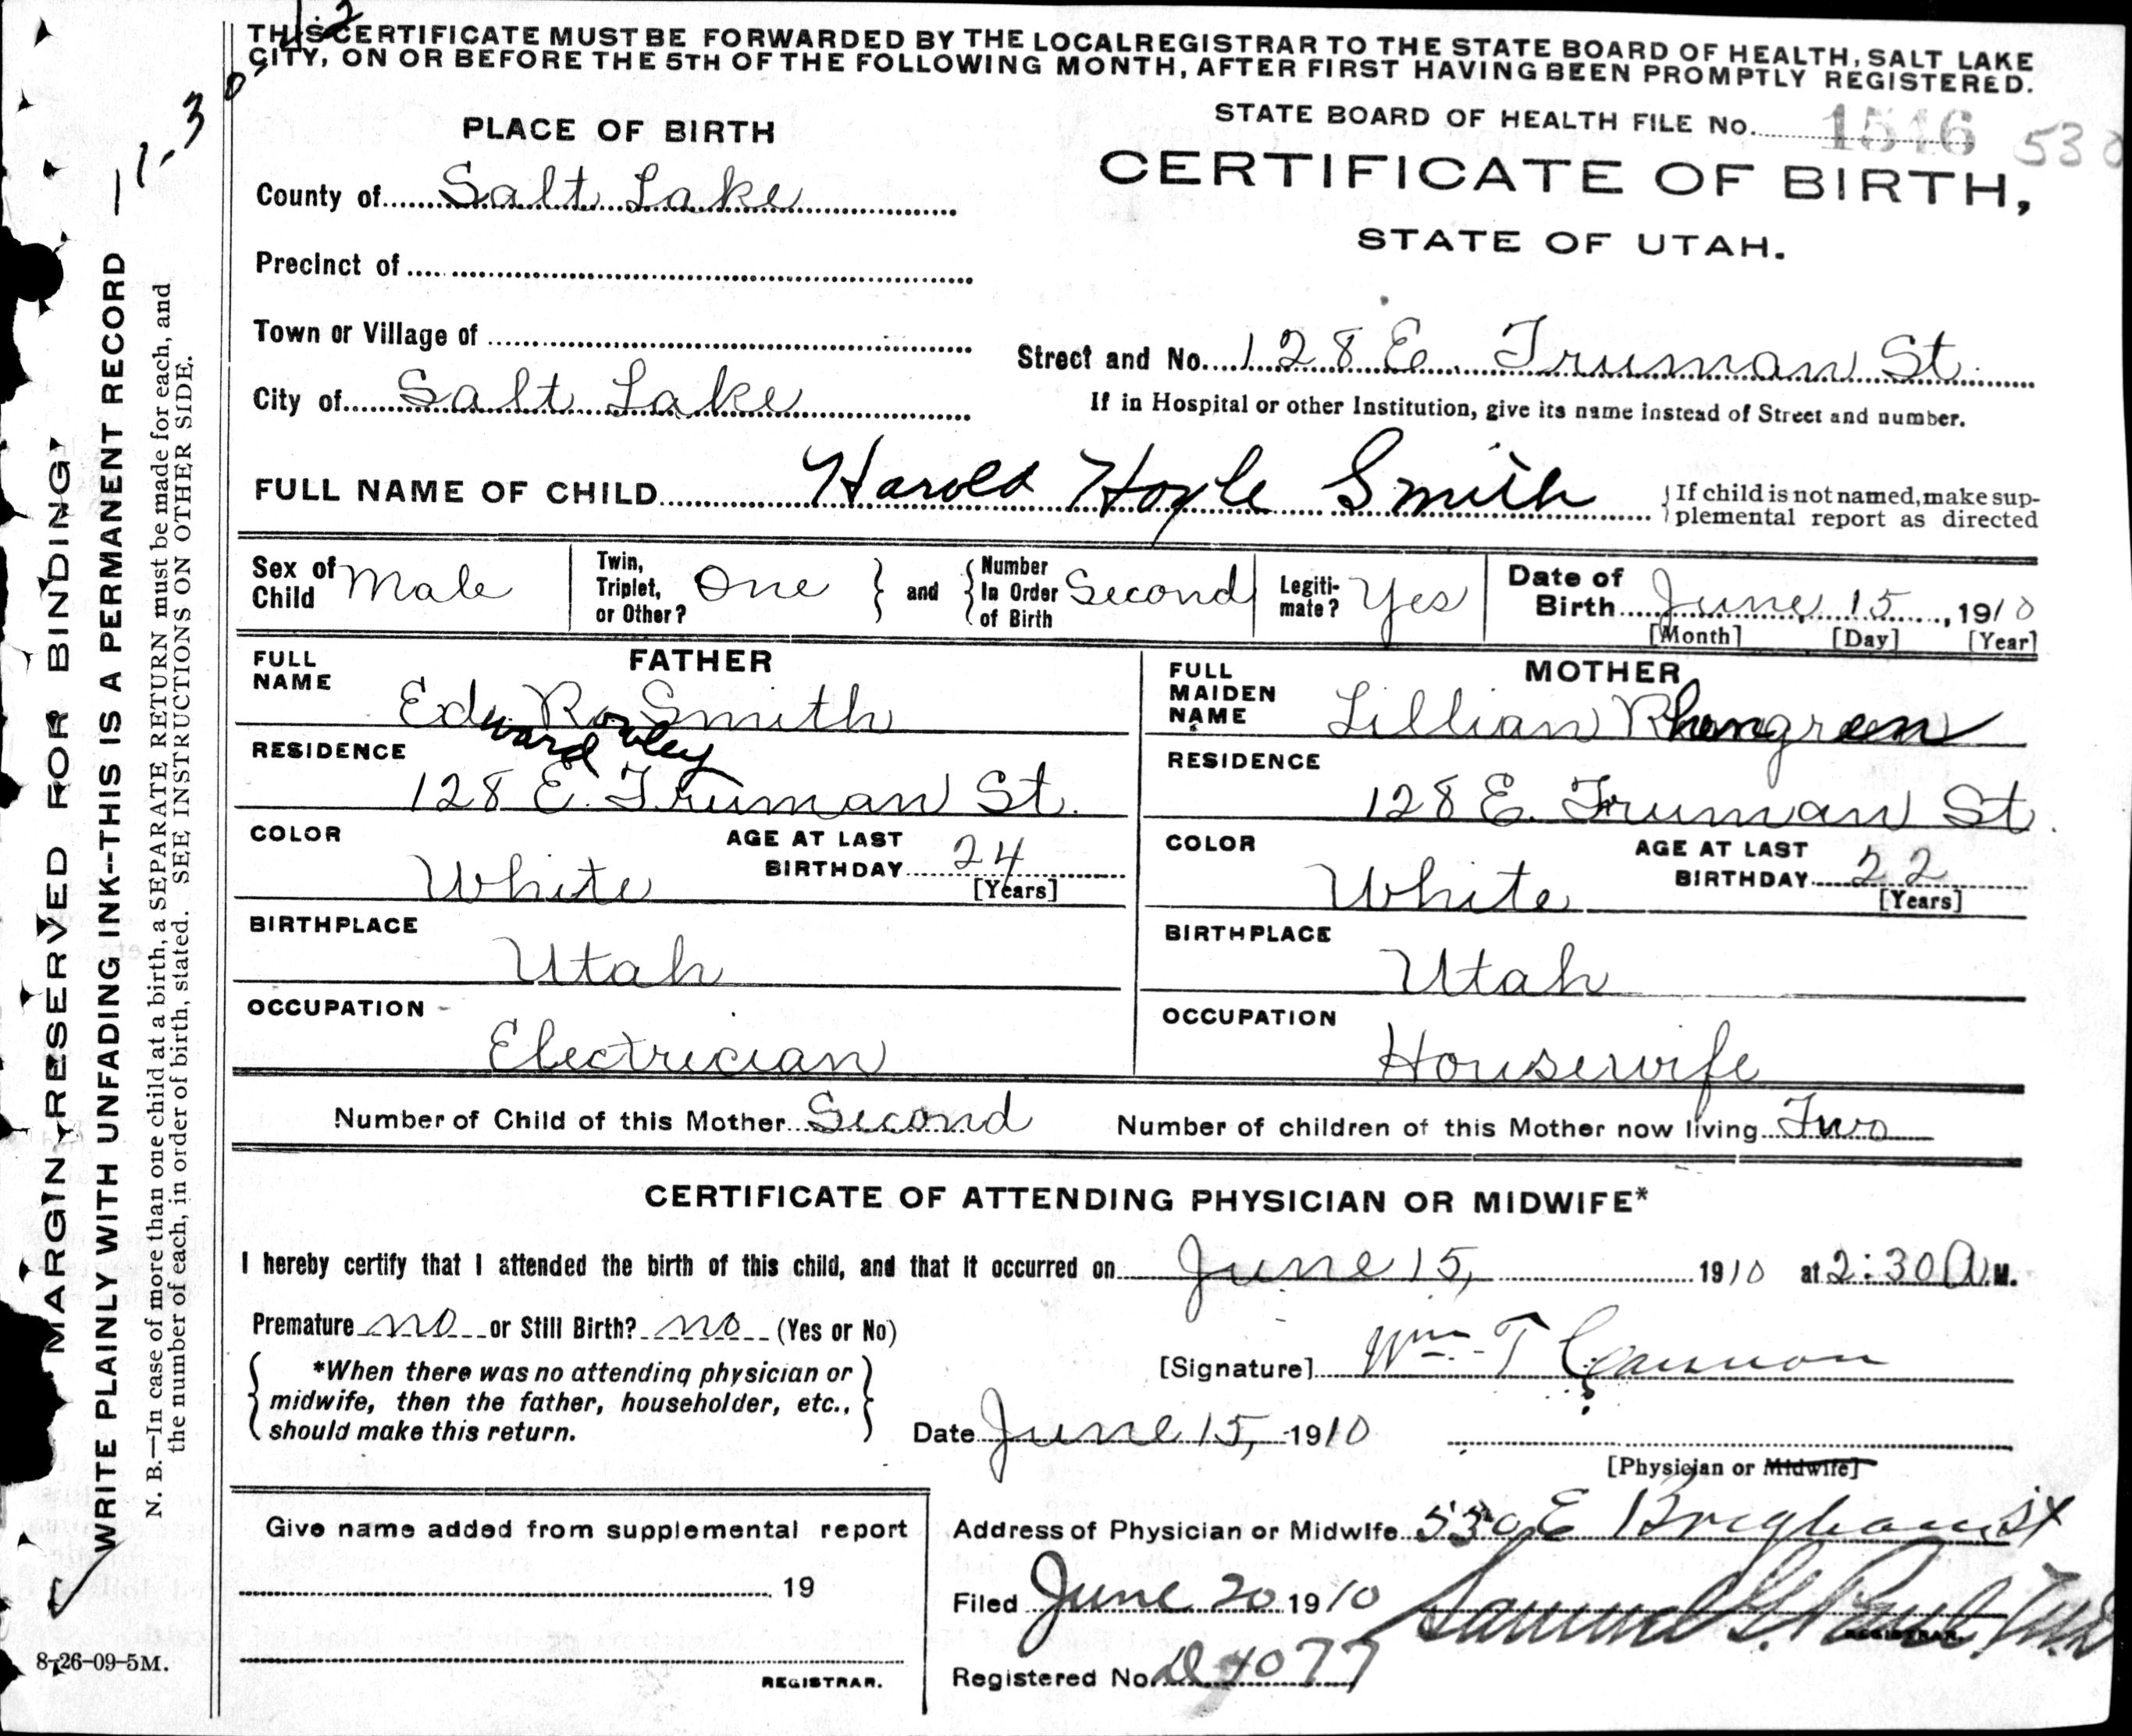 THIS CERTIFICATE MUST BE FORWARDED BY THE LOCAL REGISTRAR TO THE STATE BOARD OF HEALTH, SALT LAKE
CITY, ON OR BEFORE THE 5TH OF THE FOLLOWING MONTH, AFTER FIRST HAVING BEEN PROMPTLY REGISTERED.
STATE BOARD OF HEALTH FILE No. 1546 530
CERTIFICATE OF BIRTH,
STATE OF UTAH.
PLACE OF BIRTH
County of Salt Lake
Precinct of
Town or Village of
City of Salt Lake
Street and No. 128 E. Truman St.
If in Hospital or other Institution, give its name instead of Street and number.
FULL NAME OF CHILD Harold Hoyle Smith
If child is not named, make sup-
plemental report as directed
Sex of Child Male
Twin, Triplet, or Other? One and Number In Order of Birth Second
Legiti-mate? Yes
Date of Birth June 15, 1910
[Month] [Day] [Year]
FATHER
FULL NAME Edward Rowley Smith
RESIDENCE
128 E. Truman St.
COLOR White
AGE AT LAST BIRTHDAY 24
[Years]
BIRTHPLACE
Utah
OCCUPATION
Electrician
MOTHER
FULL MAIDEN NAME Lillian Rhengreen
RESIDENCE
128 E. Truman St.
COLOR White
AGE AT LAST BIRTHDAY 22
[Years]
BIRTHPLACE
Utah
OCCUPATION
Housewife
Number of Child of this Mother Second Number of children of this Mother now living Two
CERTIFICATE OF ATTENDING PHYSICIAN OR MIDWIFE*
I hereby certify that I attended the birth of this child, and that it occurred on June 15, 1910 at 2:30 A.M.
Premature no or Still Birth? no (Yes or No)
*When there was no attending physician or
midwife, then the father, householder, etc.,
should make this return.
[Signature] Wm T Cannon
Date June 15, 1910
[Physician or Midwife]
Address of Physician or Midwife 530 E Brigham St
Give name added from supplemental report
19
REGISTRAR.
Filed June 20 1910 Samuel G. Paul M.D.
REGISTRAR.
Registered No. D 4077
8-26-09-5M.
MARGIN RESERVED FOR BINDING
WRITE PLAINLY WITH UNFADING INK--THIS IS A PERMANENT RECORD
N. B.—In case of more than one child at a birth, a SEPARATE RETURN must be made for each, and
the number of each, in order of birth, stated. SEE INSTRUCTIONS ON OTHER SIDE.